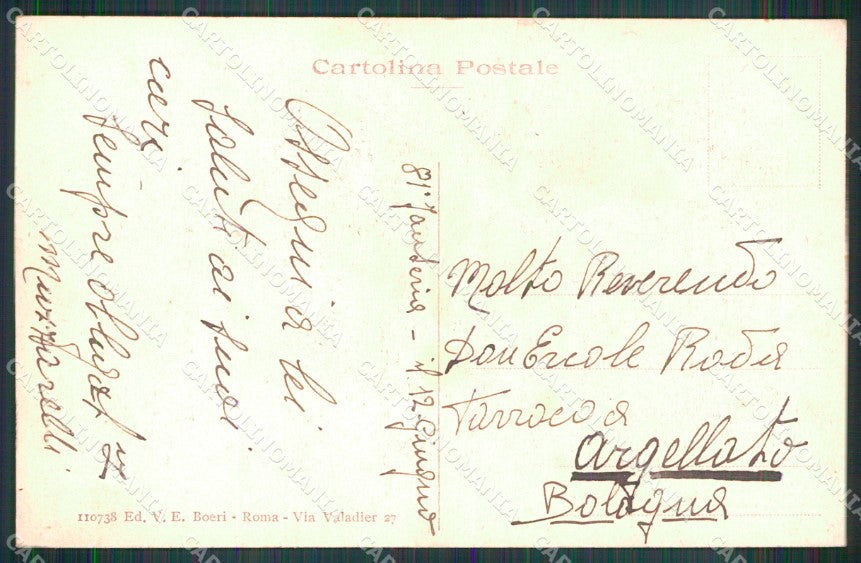 Cartolina Postale
Ossequi a lei
saluti ai suoi
cari -
Sempre obbligat
81° Fanteria - il 12 Giugno
Molto Reverendo
Don Ercole Roda
Parroco a
Argellato
Bologna
110738 Ed. V. E. Boeri - Roma - Via Valadier 27
CARTOLINOMANIA